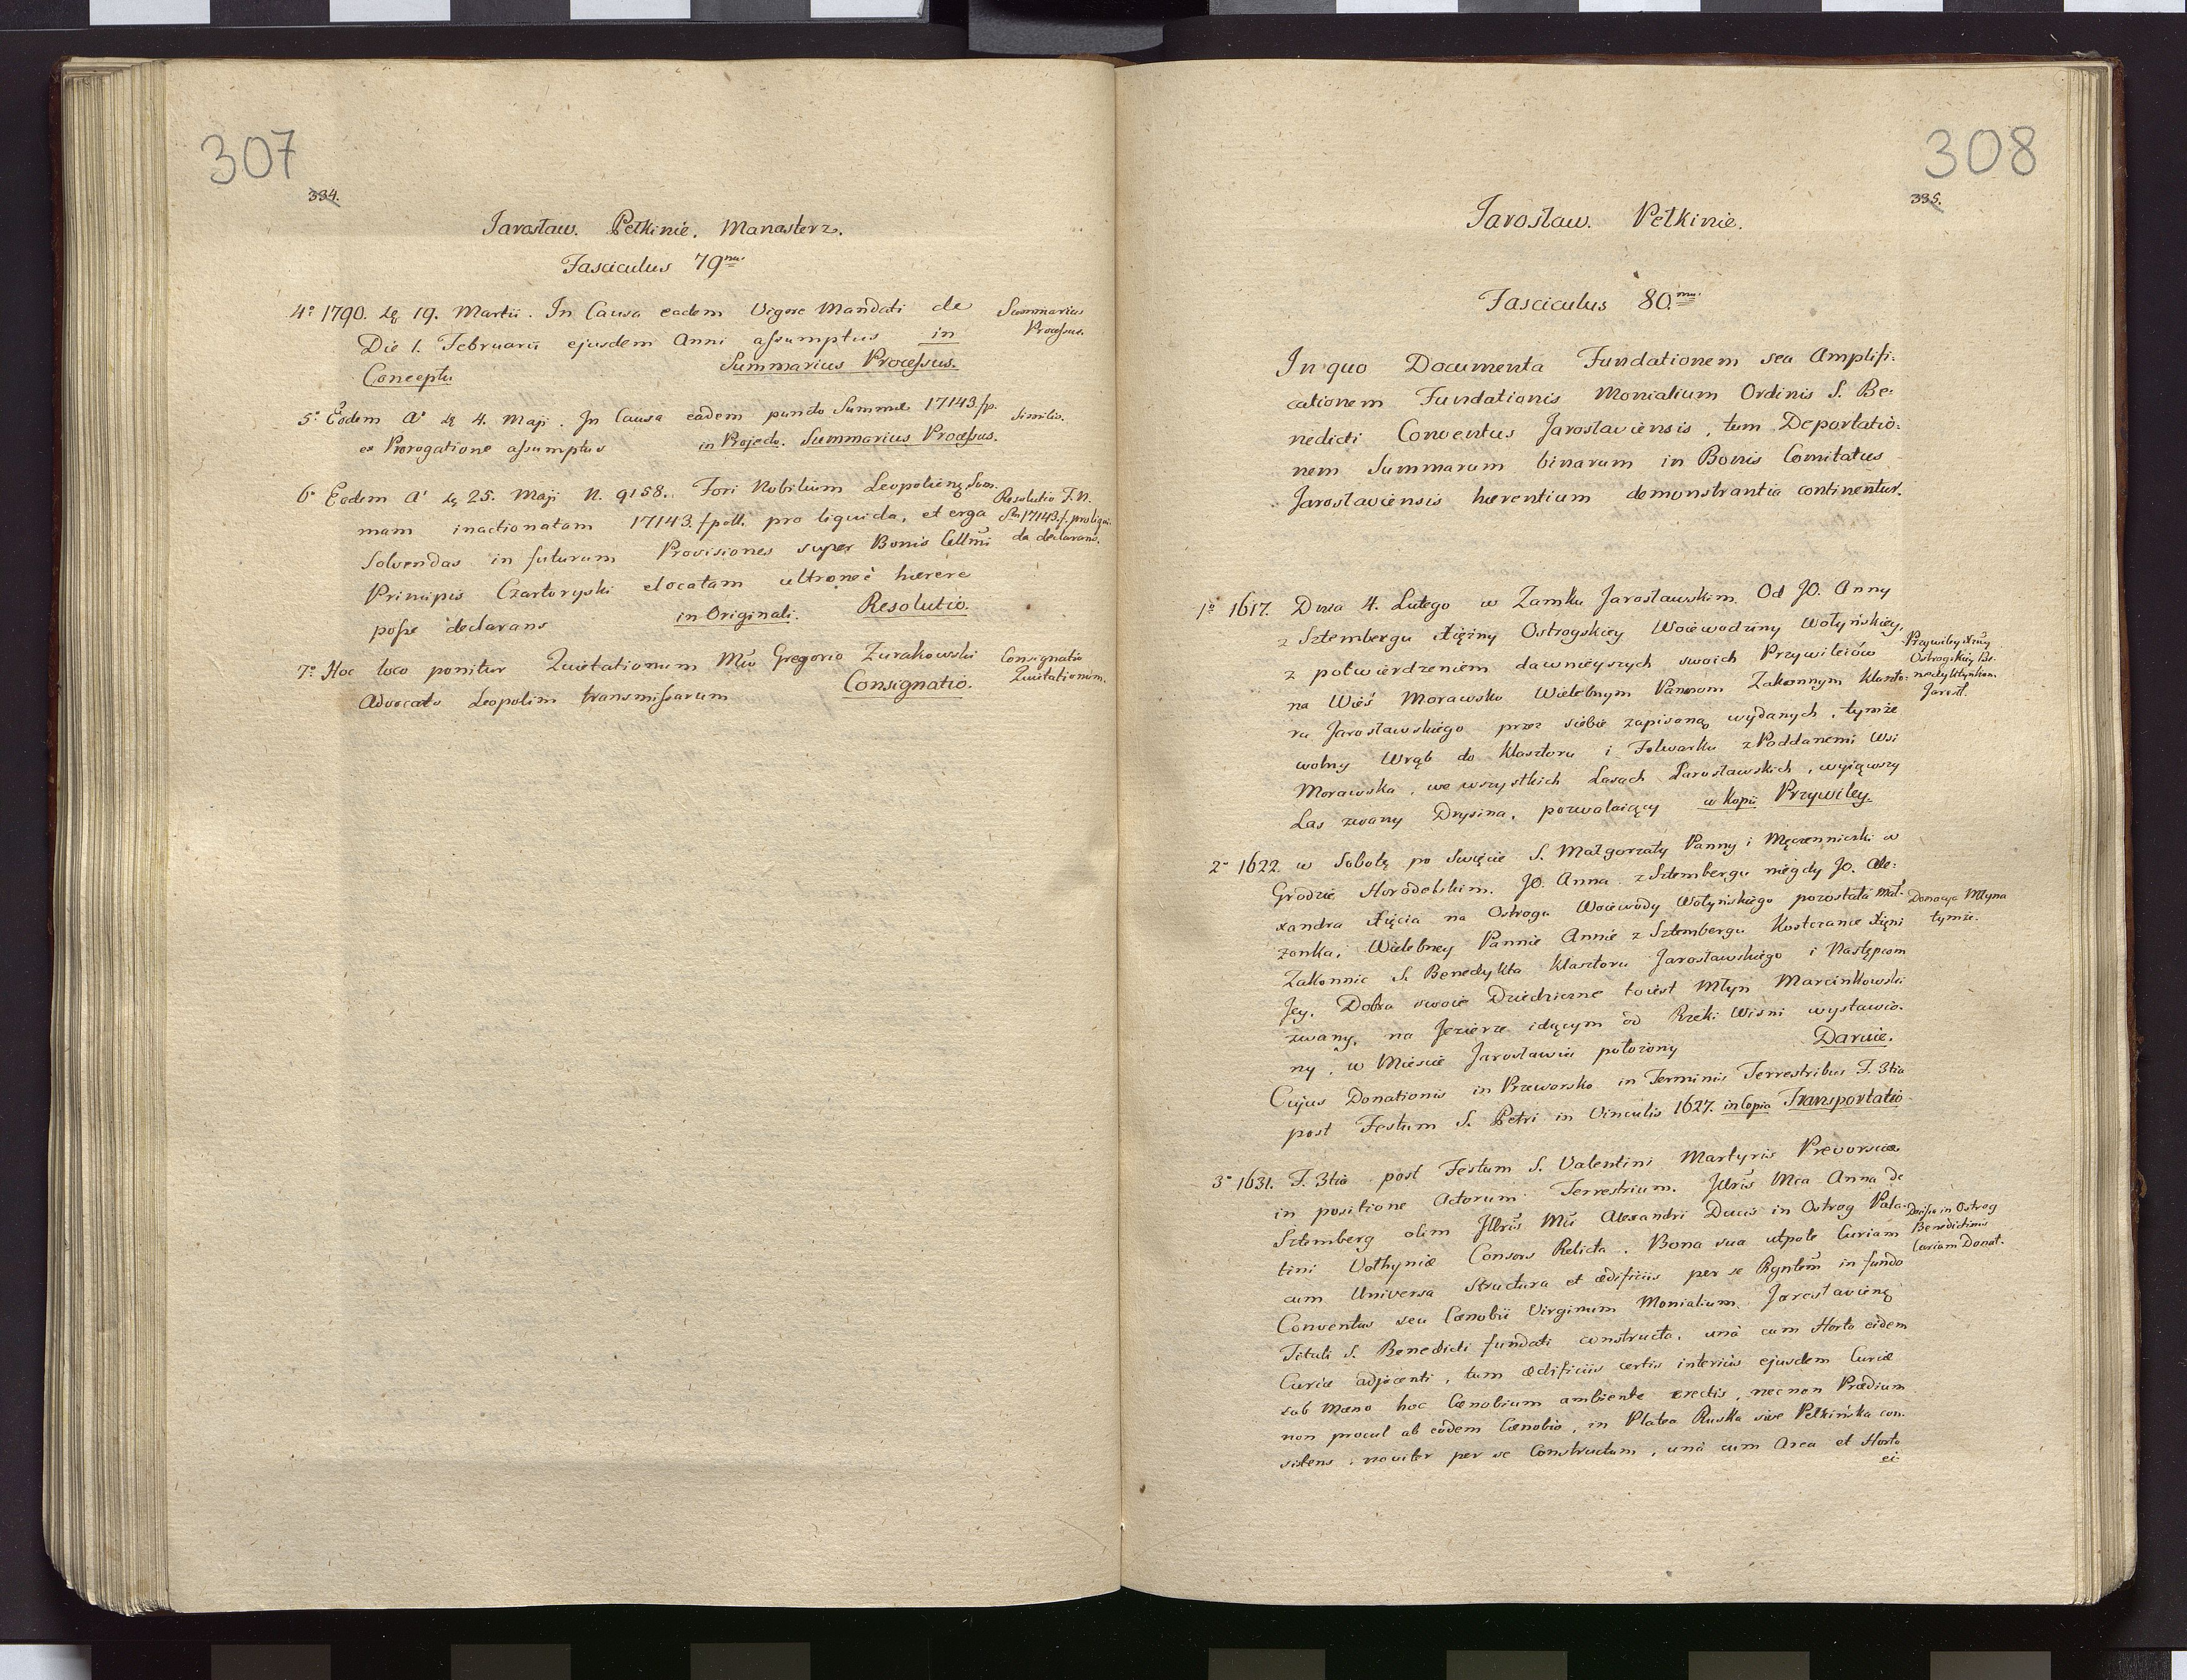 307
334.
Jarosław. Pełkinie. Manasterz.
Fasciculus 79nus.
4o 1790. 19. Martii. In Causa eadem Vigore Mandati de
Die 1. Februarii ejusdem Anni assumptus in
Conceptu Summarius Processus.
Summarius
Processus.
5o Eodem Ao 4. Maji. In Causa eadem puncto Summæ 17143 fp.
ex Prorogatione assumptus in Projecto. Summarius Processus.
Similis.
6o Eodem Ao 25. Maji N. 9158. Fori Nobilium Leopolien Sum.
mam inactionatam 17143. f poll. pro liquida, et erga
Solvendas in futurum Provisiones super Bonis Cellmi
Principis Czartoryski elocatam ultroneè hærere
posse declarans in Originali. Resolutio.
Resolutio F.N.
Sm 17143 f. pro liqui-
da declarans.
7o Hoc loco ponitur Quietationum Mco Gregorio Zurakowski
Advocato Leopolim transmissarum Consignatio.
Consignatio
Quietationum.
308
335.
Jarosław. Pełkinie.
Fasciculus 80mus.
In quo Documenta Fundationem seu Amplifi-
cationem Fundationis Monialium Ordinis S. Be-
nedicti Conventus Jaroslaviensis, tum Deportatio-
nem Summarum binarum in Bonis Comitatus
Jaroslaviensis hærentium demonstrantia continentur.
1o 1617. Dnia 4. Lutego w Zamku Jarosławskim Od JO. Anny
z Sztembergu Xiężny Ostrogskiey Woiewodziny Wołyńskiey,
z potwierdzeniem dawnieyszych swoich Przywileiów
na Wieś Morawsko Wielebnym Pannom Zakonnym Klaszto-
ru Jarosławskiego przez siebie zapisaną wydanych, tymże
wolny Wrąb do Klasztoru i Folwarku z Poddanemi Wsi
Morawska, we wszystkich Lasach Jarosławskich, wyiąwszy
Las zwany Drysina, pozwalaiący w Kopii Przywiley.
Przywiley Xżny
Ostrogskiey Be-
nedyktynkom
Jarosł.
2o 1622. w Sobotę po Swięcie S. Małgorzaty Panny i Męczenniczki w
Grodzie Horodelskim. JO. Anna z Sztembergu niegdy JO. Ale-
xandra Xięcia na Ostrogu Woiewody Wołyńskiego pozostała Mał-
żonka, Wielebney Pannie Annie z Sztembergu Kostczance Xieni
Zakonnic S. Benedykta Klasztoru Jarosławskiego i Następcom
Jey. Dobra swoie Dziedziczne toiest Młyn Marcinkowski
zwany, na Jezierze idącym od Rzeki Wisni wystawio-
ny, w Miescie Jarosławiu położony Daruie.
Cujus Donationis in Przeworsko in Terminis Terrestribus F. 3tia
post Festum S. Petri in Vinculis 1627. in Copia Transportatio
Donacya Młyna
tymże.
3o 1631. F. 3tia post Festum S. Valentini Martyris Prevorsciæ
in positione Actorum Terrestrium. Jllris Mca Anna de
Sztemberg olim Jllris Mci Alexandri Ducis in Ostrog Pala-
tini Volhyniæ Consors Relicta. Bona sua utpote Curiam
cum Universa Structura et ædificiis per se in fundo
Conventus seu Cænobii Virginum Monialium Jaroslavien
Tituli S. Benedicti fundati constructa, unà cum Horto eidem
Curiæ adjacenti, tum ædificiis certis interius ejusdem Curiæ
sub Mæno hoc Cænobium ambiente erectis, nec non Prædium
non procul ab eodem Cænobio, in Platea Ruska sive Pełkińska con-
sistens, noviter per se Constructum, unà cum Area et Horto
ei
Ducissa in Ostrog
Benedictinis
Curiam Donat.